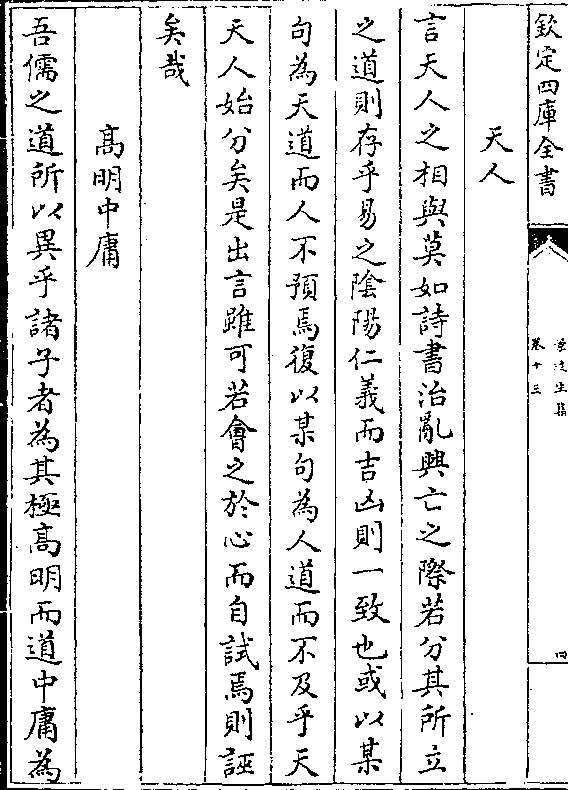 欽定四庫全書
卷十三
四
天人
言天人之相與莫如詩書治亂興亡之際若分其所立
之道則存乎易之陰陽仁義而吉凶則一致也或以某
句為天道而人不預焉復以某句為人道而不及乎天
天人始分矣是出言雖可若會之於心而自試焉則誣
矣哉
高明中庸
吾儒之道所以異乎諸子者為其極高明而道中庸為